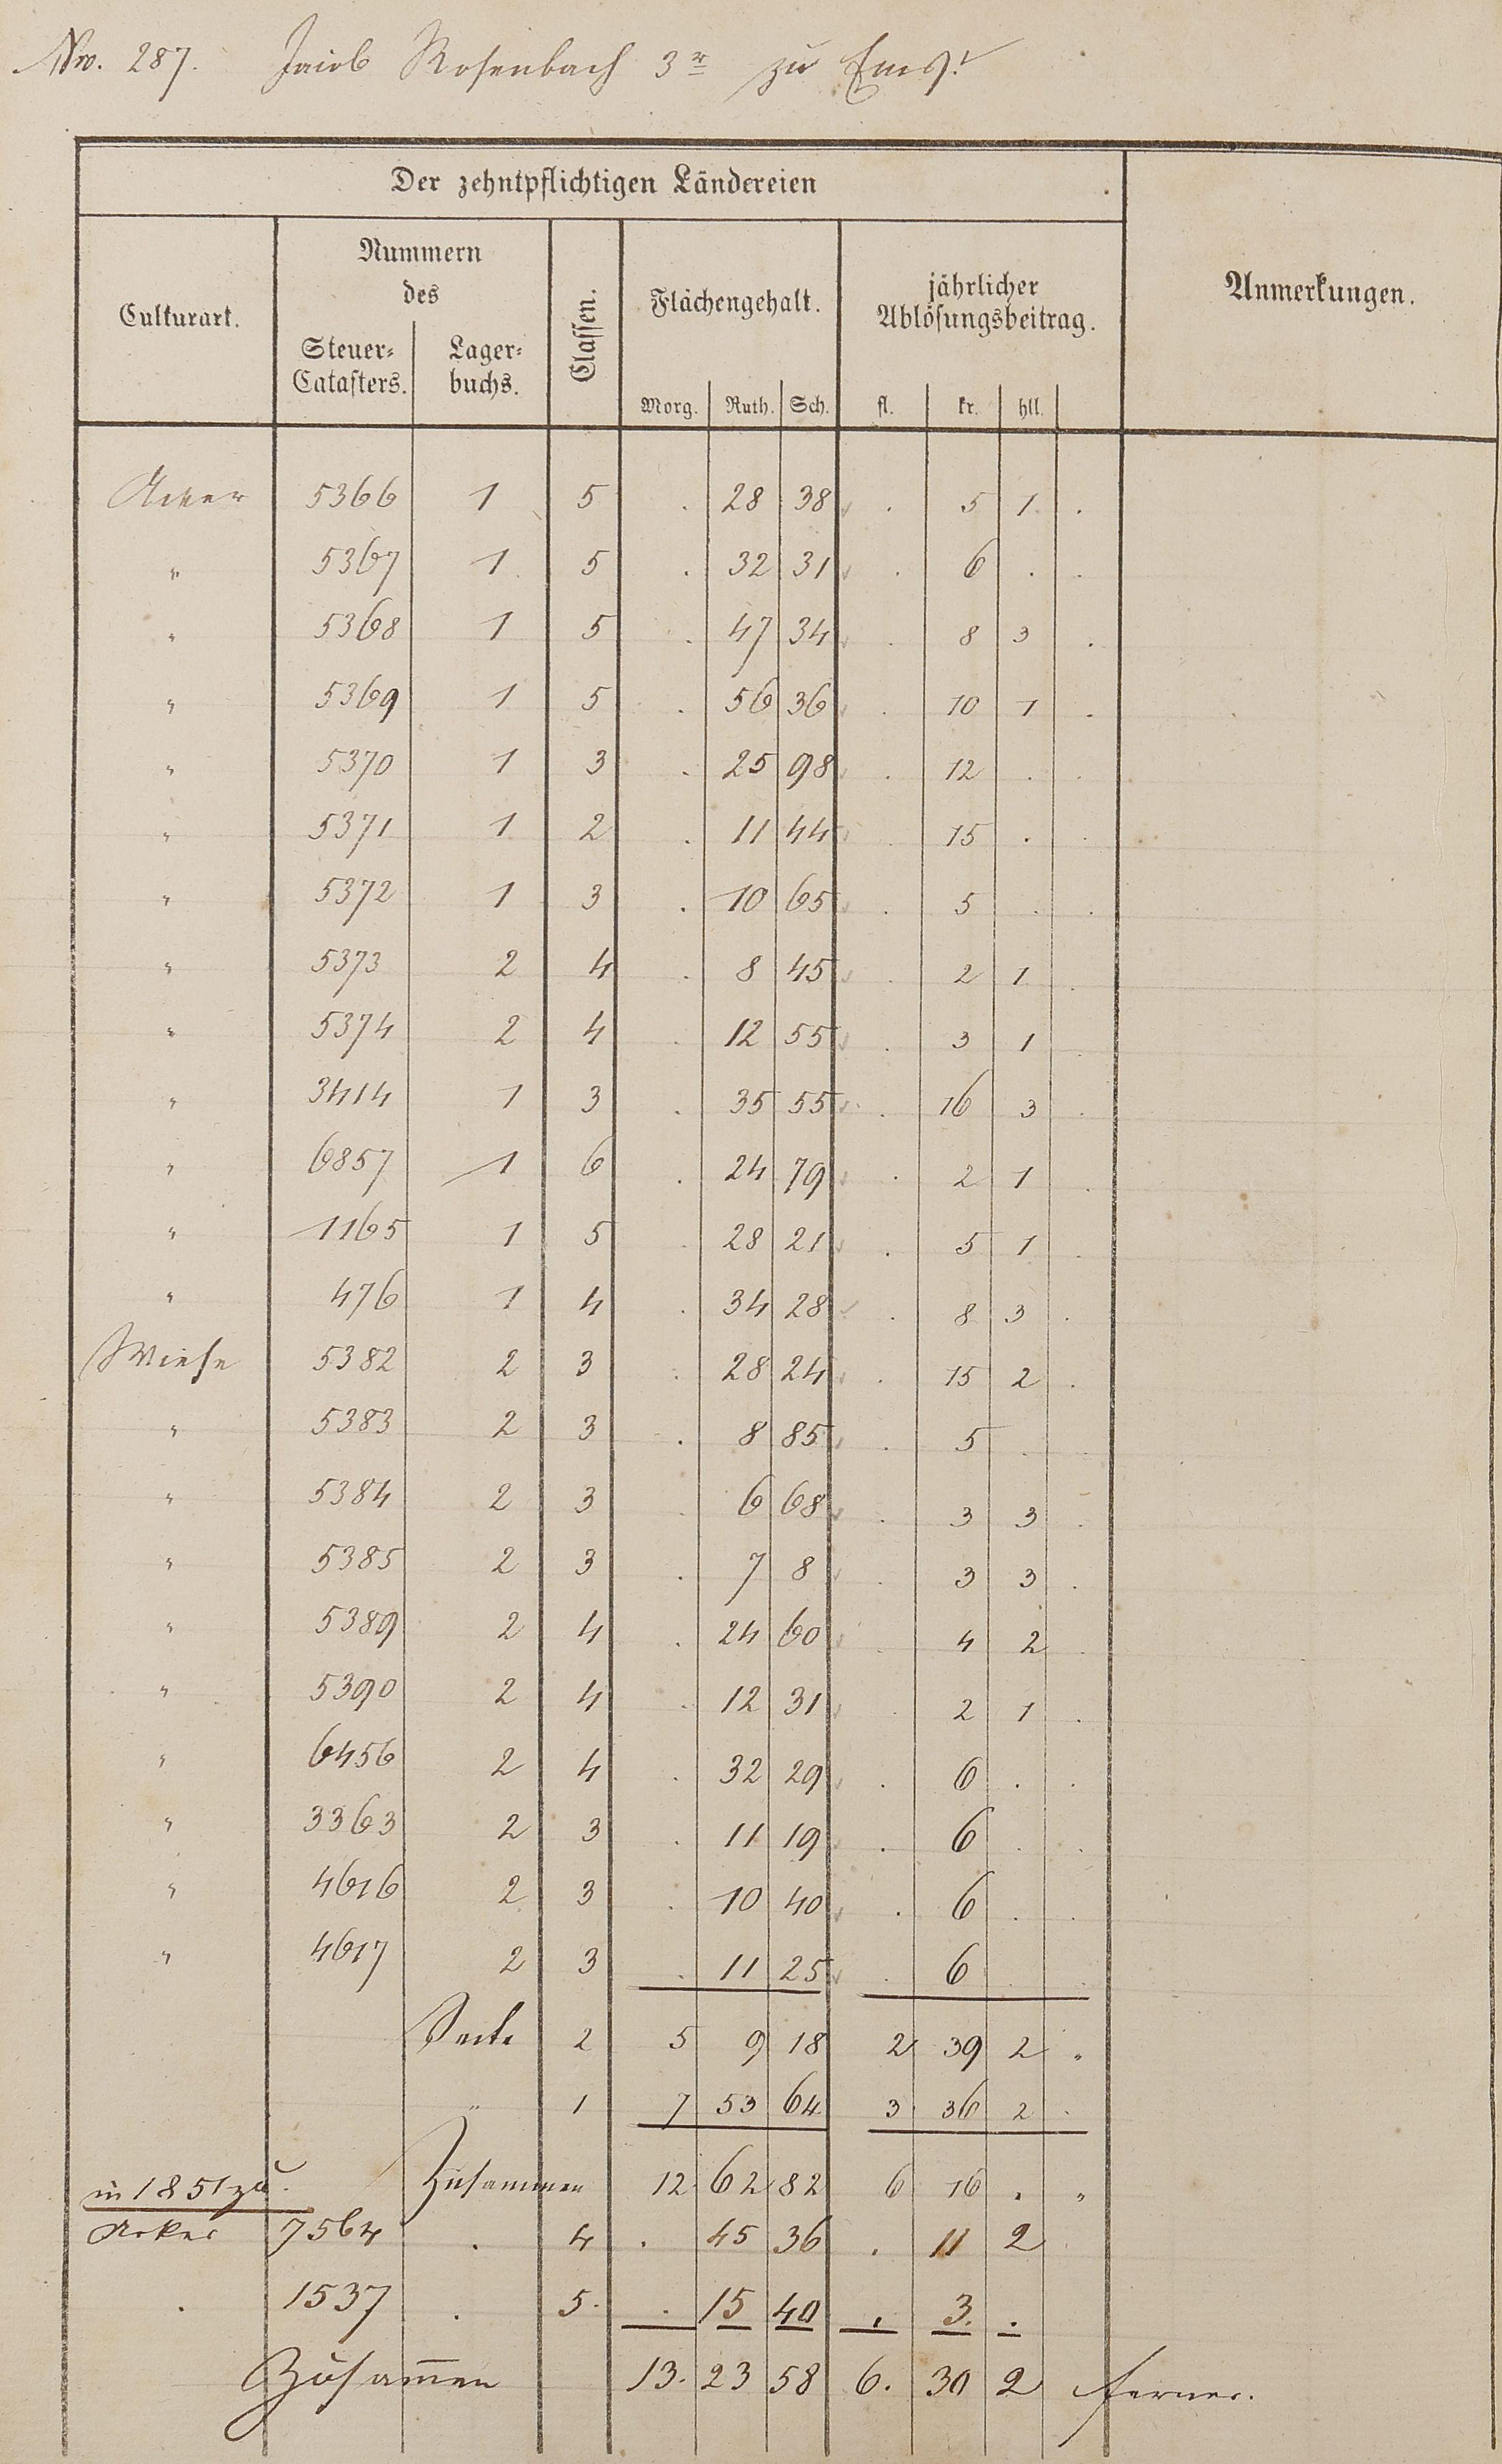 Nro. 287. Jacob Rosenbach 3r zu Ems.
Der zehntpflichtigen Ländereien
Culturart. Nummern des Steuer-Catasters. Lager-buchs. Classen. Flächengehalt. jährlicher Ablösungsbeitrag. Anmerkungen.
Morg. Ruth. Sch. fl. kr. hll.
Acker 5366 1 5 . 28 38 . 5 1 .
" 5367 1 5 . 32 31 . 6 . .
" 5368 1 5 . 47 34 . 8 3 .
" 5369 1 5 . 56 36 . 10 1 .
" 5370 1 3 . 25 98 . 12 . .
" 5371 1 2 . 11 44 . 15 . .
" 5372 1 3 . 10 65 . 5 . .
" 5373 2 4 . 8 45 . 2 1 .
" 5374 2 4 . 12 55 . 3 1 .
" 3414 1 3 . 35 55 . 16 3 .
" 6857 1 6 . 24 79 . 2 1 .
" 1165 1 5 . 28 21 . 5 1 .
" 476 1 4 . 34 28 . 8 3 .
Wiese 5382 2 3 . 28 24 . 15 2 .
" 5383 2 3 . 8 85 . 5 . .
" 5384 2 3 . 6 68 . 3 3 .
" 5385 2 3 . 7 8 . 3 3 .
" 5389 2 4 . 24 60 . 4 2 .
" 5390 2 4 . 12 31 . 2 1 .
" 6456 2 4 . 32 29 . 6 . .
" 3363 2 3 . 11 19 . 6 . .
" 4616 2 3 . 10 40 . 6 . .
" 4617 2 3 . 11 25 . 6 . .
Seite 2 5 9 18 2 39 2 "
" 1 7 53 64 3 36 2 .
Zusammen 12 62 82 6 16 . "
in 1851 zu.
Acker 7564 . 4 . 45 36 . 11 2
. 1537 . 5. . 15 40 . 3. .
Zusammen 13. 23 58 6. 30 2 ferner.